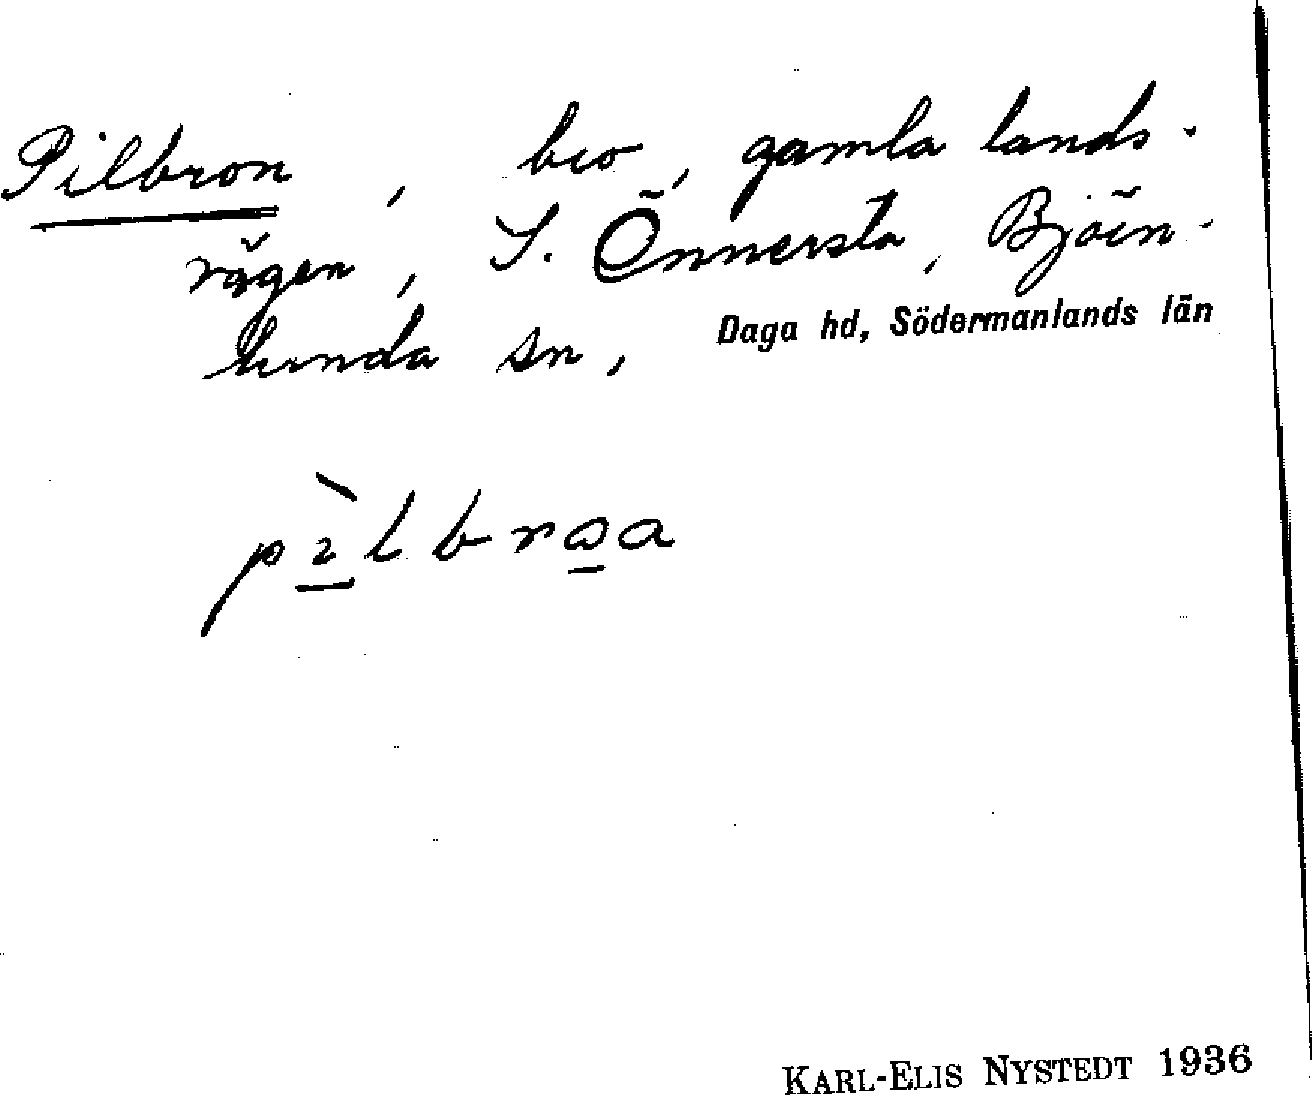 Pilbron, bro, gamla lands-
vägen, S. Önnersta, Björn-
lunda sn, Daga hd, Södermanlands län
pìlbrɷa
KARL-ELIS NYSTEDT 1936